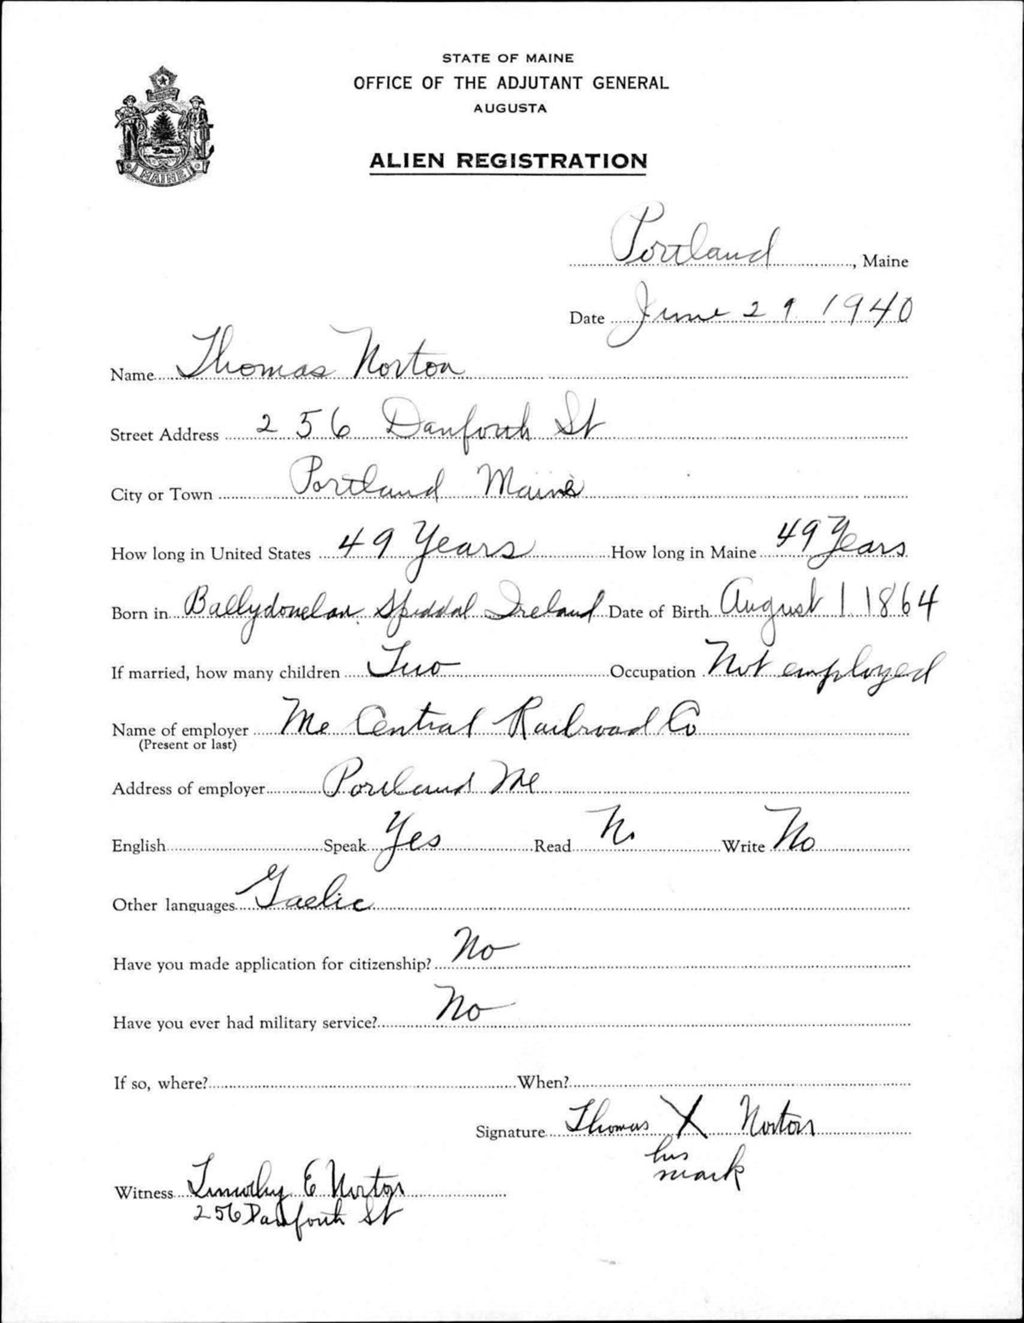 STATE OF MAINE
OFFICE OF THE ADJUTANT GENERAL
AUGUSTA
ALIEN REGISTRATION
MAINE
Portland, Maine
Date June 29 1940
Name Thomas Norton
Street Address 256 Danforth St
City or Town Portland Maine
How long in United States 49 Years How long in Maine 49 Years
Born in Ballydonelan Spiddal Ireland Date of Birth August 1 1864
If married, how many children Two Occupation Not employed
Name of employer Me Central Railroad Co
(Present or last)
Address of employer Portland Me
English Speak Yes Read No Write No
Other languages Gaelic
Have you made application for citizenship? No
Have you ever had military service? No
If so, where? When?
Signature Thomas X Norton
his
mark
Witness Timothy E Norton
256 Danforth St